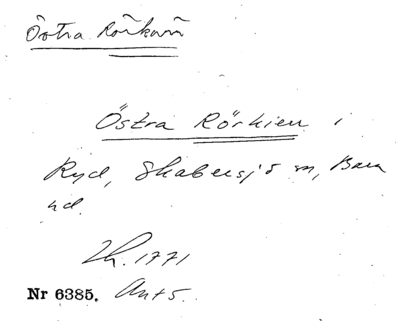 Östra Rörkärr
Östra Rörkieu i
Ryd, Skabersjö sn, Bara
hd.
Lh. 1771
Nr 6385. Ant 5.